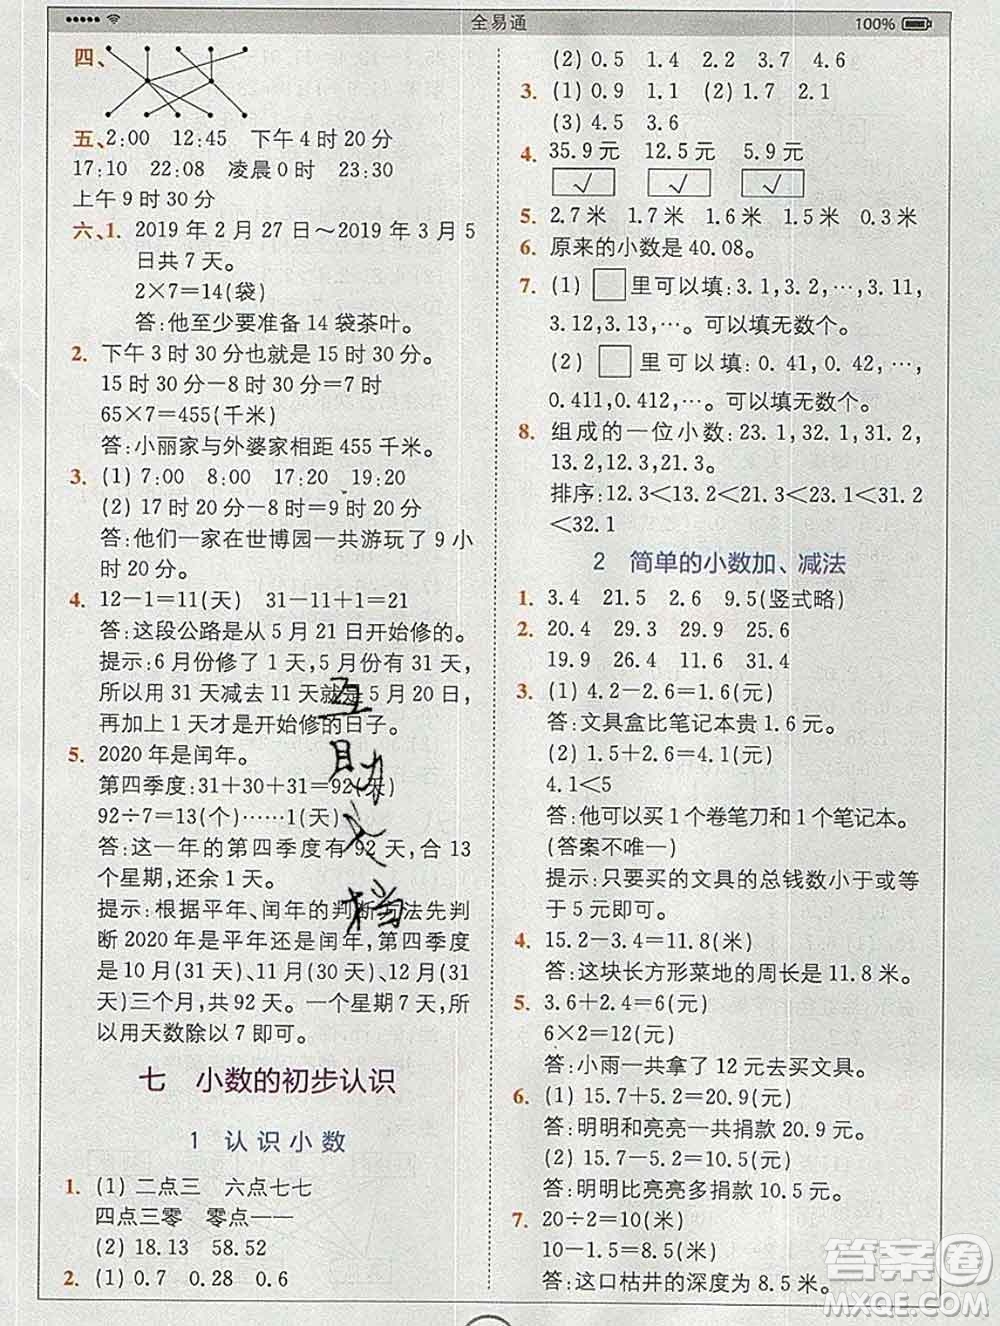 全易通
100%
四、
五、2:00 12:45 下午4时20分
17:10 22:08 凌晨0时 23:30
上午9时30分
六、1. 2019年2月27日～2019年3月5
日共7天。
2×7=14(袋)
答:他至少要准备14袋茶叶。
2. 下午3时30分也就是15时30分。
15时30分－8时30分=7时
65×7=455(千米)
答:小丽家与外婆家相距455千米。
3. (1) 7:00 8:00 17:20 19:20
(2) 17时20分－8时=9时20分
答:他们一家在世博园一共游玩了9小
时20分。
4. 12－1=11(天) 31－11+1=21
答:这段公路是从5月21日开始修的。
提示:6月份修了1天,5月有31天,
所以用31天减去11天就是5月20日,
再加上1天才是开始修的日子。
5. 2020年是闰年。
第四季度:31+30+31=92(天)
92÷7=13(个)……1(天)
答:这一年的第四季度有92天,合13
个星期,还余1天。
提示:根据平年、闰年的判断方法先判
断2020年是平年还是闰年,第四季度
是10月(31天)、11月(30天)、12月(31
天)三个月,共92天。一个星期7天,所
以用天数除以7即可。
七 小数的初步认识
1 认识小数
1. (1) 二点三 六点七七
四点三零 零点一一
(2) 18.13 58.52
2. (1) 0.7 0.28 0.6
(2) 0.5 1.4 2.2 3.7 4.6
3. (1) 0.9 1.1 (2) 1.7 2.1
(3) 4.5 3.6
4. 35.9元 12.5元 5.9元
√ √ √
5. 2.7米 1.7米 1.6米 1.5米 0.3米
6. 原来的小数是40.08。
7. (1) □里可以填:3.1,3.2,…,3.11,
3.12,3.13,…。可以填无数个。
(2) □里可以填:0.41,0.42,…,
0.411,0.412,…。可以填无数个。
8. 组成的一位小数:23.1,32.1,31.2,
13.2,12.3,21.3。
排序:12.3<13.2<21.3<23.1<31.2
<32.1
2 简单的小数加、减法
1. 3.4 21.5 2.6 9.5(竖式略)
2. 20.4 29.3 29.9 25.6
19.9 26.4 11.6 31.4
3. (1) 4.2－2.6=1.6(元)
答:文具盒比笔记本贵1.6元。
(2) 1.5+2.6=4.1(元)
4.1<5
答:他可以买1个卷笔刀和1个笔记本。
(答案不唯一)
提示:只要买的文具的总钱数小于或等
于5元即可。
4. 15.2－3.4=11.8(米)
答:这块长方形菜地的周长是11.8米。
5. 3.6+2.4=6(元)
6×2=12(元)
答:小雨一共拿了12元去买文具。
6. (1) 15.7+5.2=20.9(元)
答:明明和亮亮一共捐款20.9元。
(2) 15.7－5.2=10.5(元)
答:明明比亮亮多捐款10.5元。
7. 20÷2=10(米)
10－1.5=8.5(米)
答:这口枯井的深度为8.5米。
互
助
文
档
答案圈
MXQE.COM